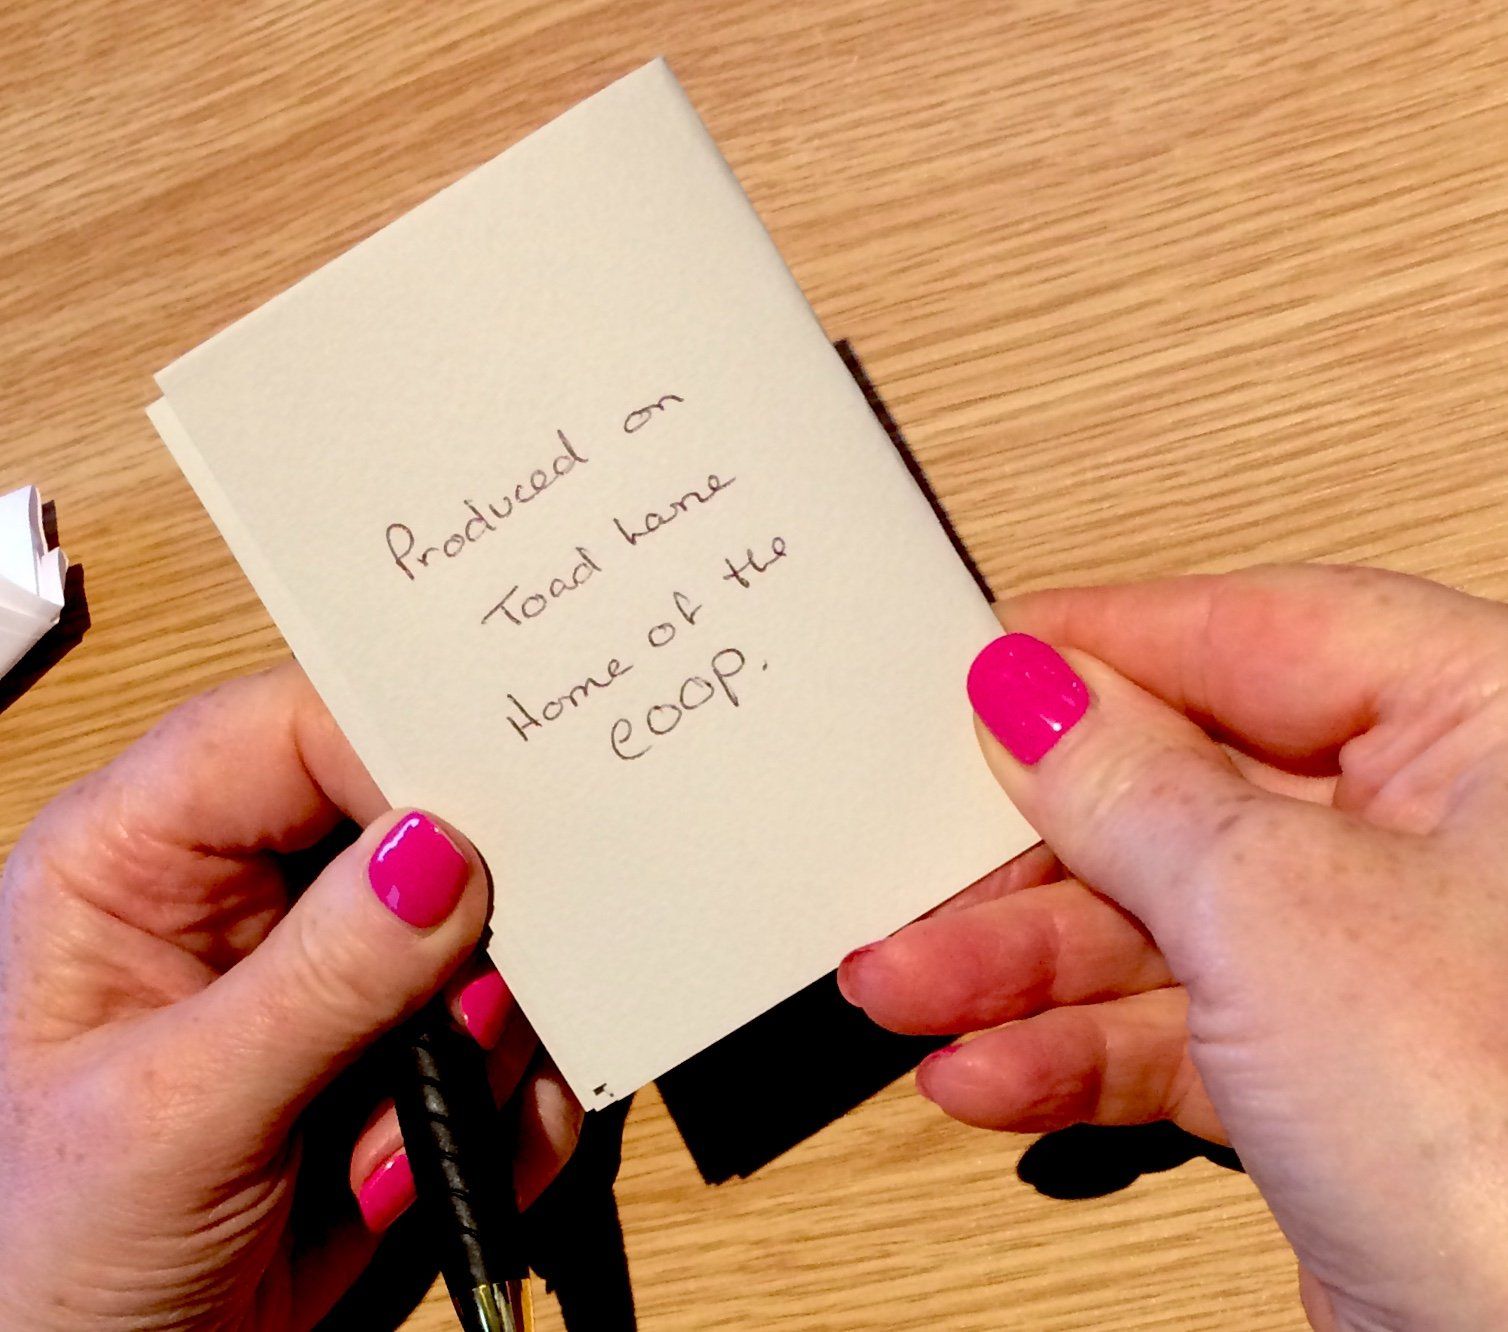 Produced on
Toad Lane
Home of the
COOP.